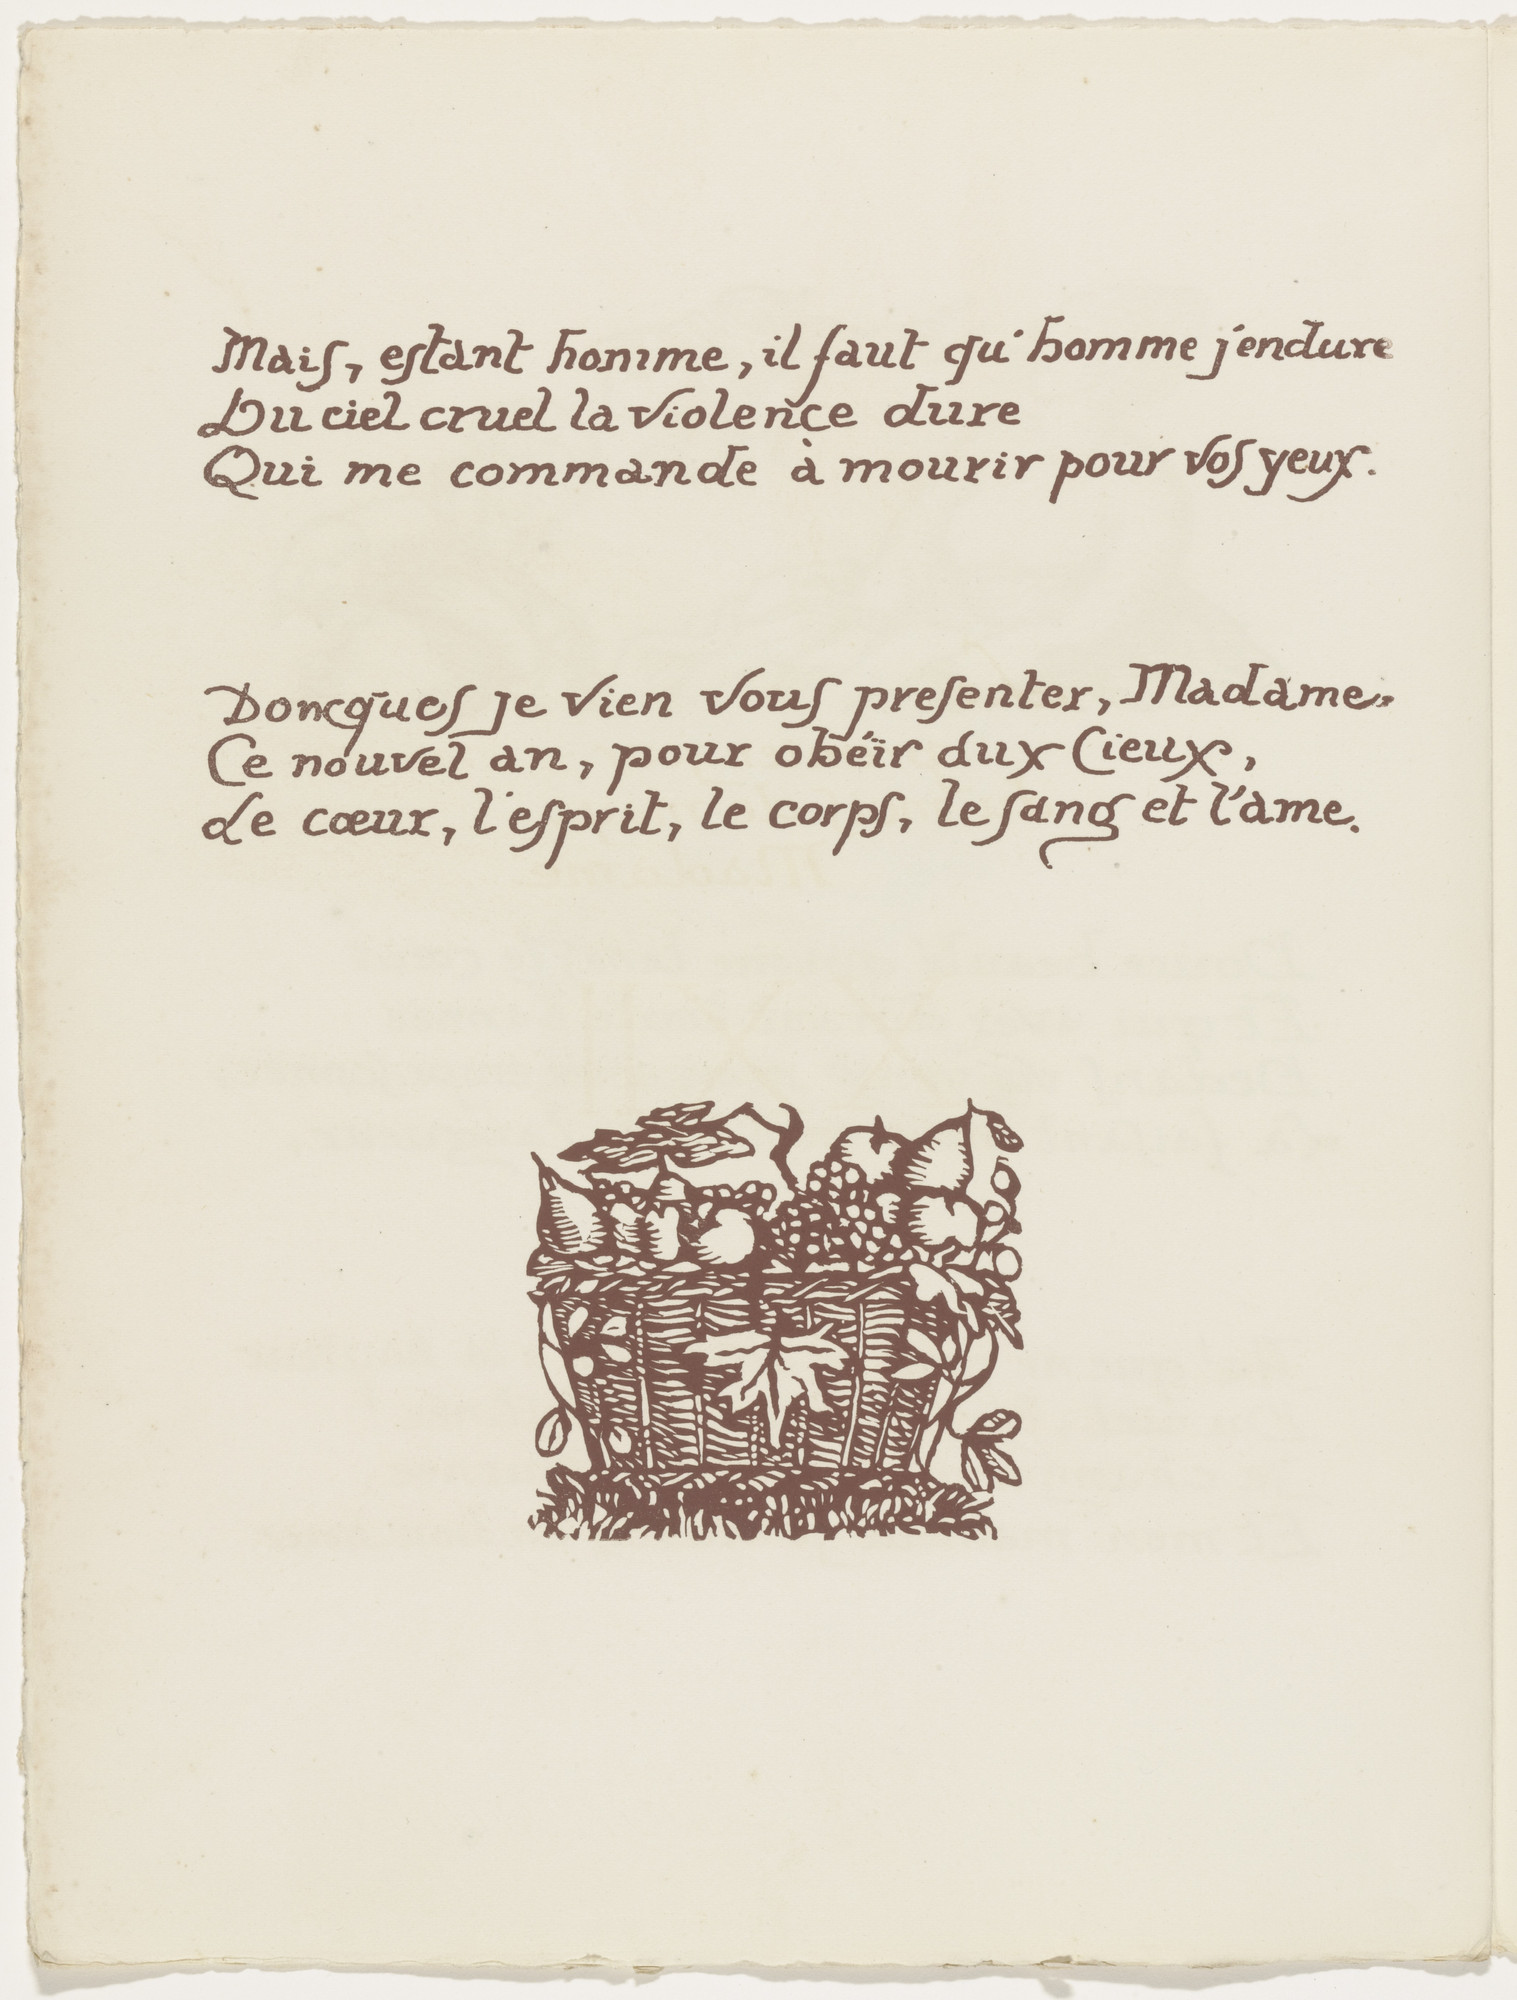 Mais, estant homme, il faut qu'homme j'endure
Du ciel cruel la violence dure
Qui me commande à mourir pour vos yeux.
Doncques je vien vous presenter, Madame,
Ce nouvel an, pour obéïr aux Cieux,
Le cœur, l'esprit, le corps, le sang et l'âme.